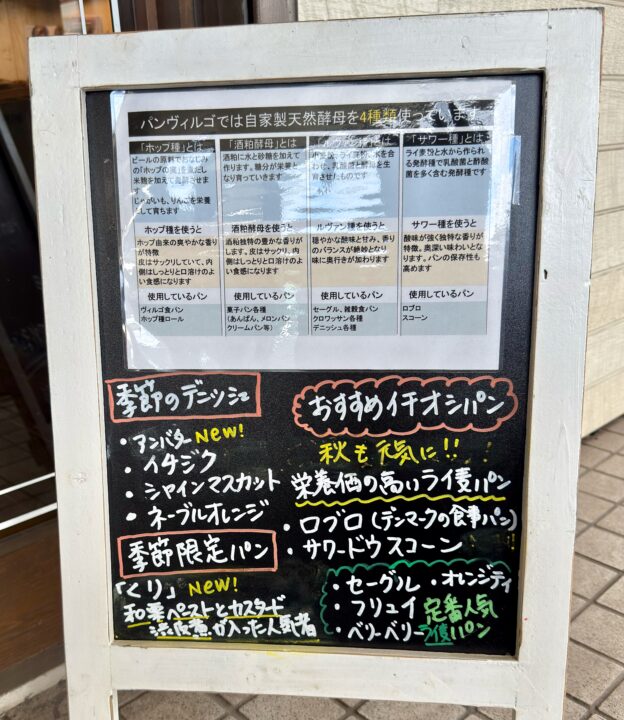 パンヴィルゴでは自家製天然酵母を4種類使っています
「ホップ種」とは
ビールの原料でおなじみ
の「ホップの実」を煮だし
米麹を加えて発酵させます
じゃがいも、りんごを栄養
として育ちます
ホップ種を使うと
ホップ由来の爽やかな香り
が特徴
皮はサックリしていて、内
側はしっとりと口溶けのよ
い食感になります
使用しているパン
ヴィルゴ食パン
ホップ種ロール
「酒粕酵母」とは
酒粕に水と砂糖を加えて
作ります。糖分が栄養と
なり育っていきます
酒粕酵母を使うと
酒粕独特の豊かな香りが
します。皮はサックリ、内
側はしっとりと口溶けのよ
い食感になります
使用しているパン
菓子パン各種
(あんぱん、メロンパン
クリームパン等)
「ルヴァン種」とは
小麦粉、ライ麦粉、水を合
わせ、乳酸菌と酵母を生
育させたものです
ルヴァン種を使うと
穏やかな酸味と甘み、香り
のバランスが絶妙となり
味に奥行きが加わります
使用しているパン
セーグル、雑穀食パン
クロワッサン各種
デニッシュ各種
「サワー種」とは
ライ麦粉と水から作られ
る発酵種で乳酸菌と酢酸
菌を多く含む発酵種です
サワー種を使うと
酸味が強く独特な香りが
特徴。奥深い味わいとな
ります。パンの保存性も
高めます
使用しているパン
ロブロ
スコーン
季節のデニッシュ
・アンバター NEW!
・イチジク
・シャインマスカット
・ネーブルオレンジ
季節限定パン
「くり」 NEW!
和栗ペーストとカスタード
渋皮煮が入った人気者
おすすめイチオシパン
秋も元気に!!
栄養価の高いライ麦パン
・ロブロ(デンマークの食事パン)
・サワードウスコーン
・セーグル ・オレンジティ
・フリュイ 定番人気
・ベリーベリー パン